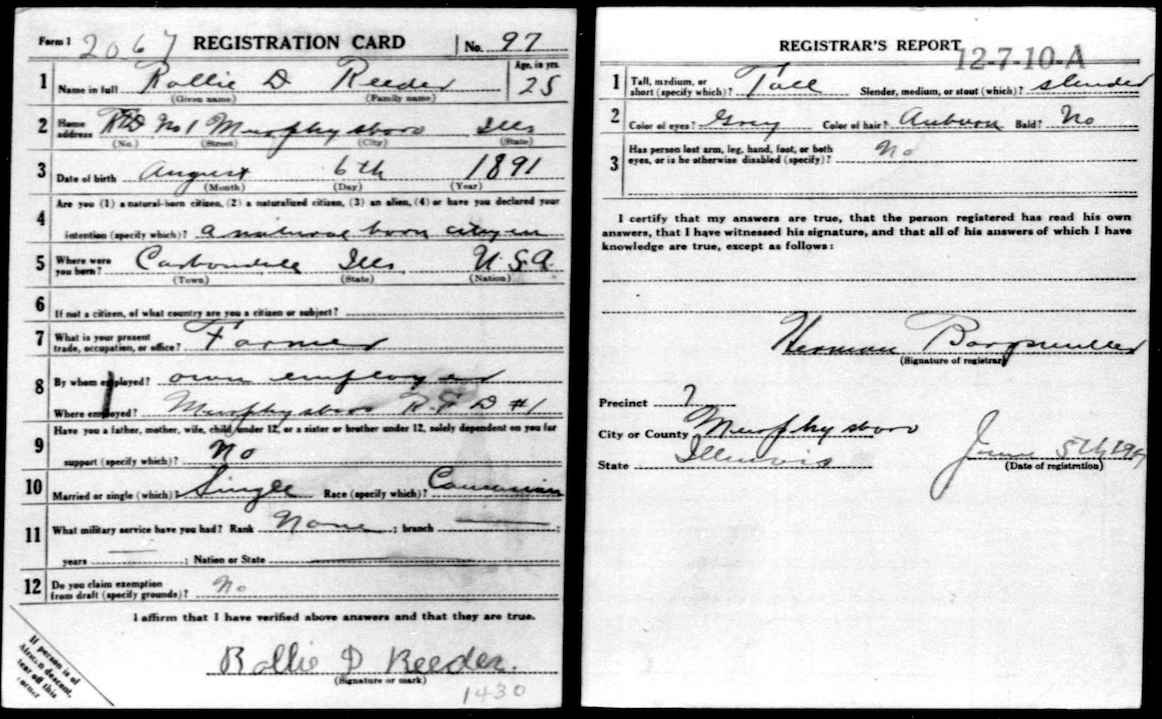 Form 1 2067 REGISTRATION CARD No. 97
1 Name in full Rollie D Reeder Age, in yrs. 25
(Given name) (Family name)
2 Home address RFD No 1 Murphysboro Ills
(No.) (Street) (City) (State)
3 Date of birth August 6th 1891
(Month) (Day) (Year)
4 Are you (1) a natural-born citizen, (2) a naturalized citizen, (3) an alien, (4) or have you declared your
intention (specify which)? a natural born cityen
5 Where were you born? Carbondale Ills U.S.A.
(Town) (State) (Nation)
6 If not a citizen, of what country are you a citizen or subject?
7 What is your present trade, occupation, or office? Farmer
8 By whom employed? own employer
Where employed? Murphysboro R.F.D #1
9 Have you a father, mother, wife, child under 12, or a sister or brother under 12, solely dependent on you for
support (specify which)? No
10 Married or single (which)? Single Race (specify which)? Caucasian
11 What military service have you had? Rank None ; branch ;
years ; Nation or State
12 Do you claim exemption from draft (specify grounds)? No
I affirm that I have verified above answers and that they are true.
Rollie D Reeder.
(Signature or mark)
1430
If person is of
African descent,
tear off this
corner
REGISTRAR'S REPORT 12-7-10-A
1 Tall, medium, or short (specify which)? Tall Slender, medium, or stout (which)? slender
2 Color of eyes? Gray Color of hair? Auburn Bald? No
3 Has person lost arm, leg, hand, foot, or both eyes, or is he otherwise disabled (specify)? No
I certify that my answers are true, that the person registered has read his own
answers, that I have witnessed his signature, and that all of his answers of which I have
knowledge are true, except as follows:
Herman Borgsmiller
(Signature of registrar)
Precinct 7
City or County Murphysboro
State Illinois June 5th 1917
(Date of registration)